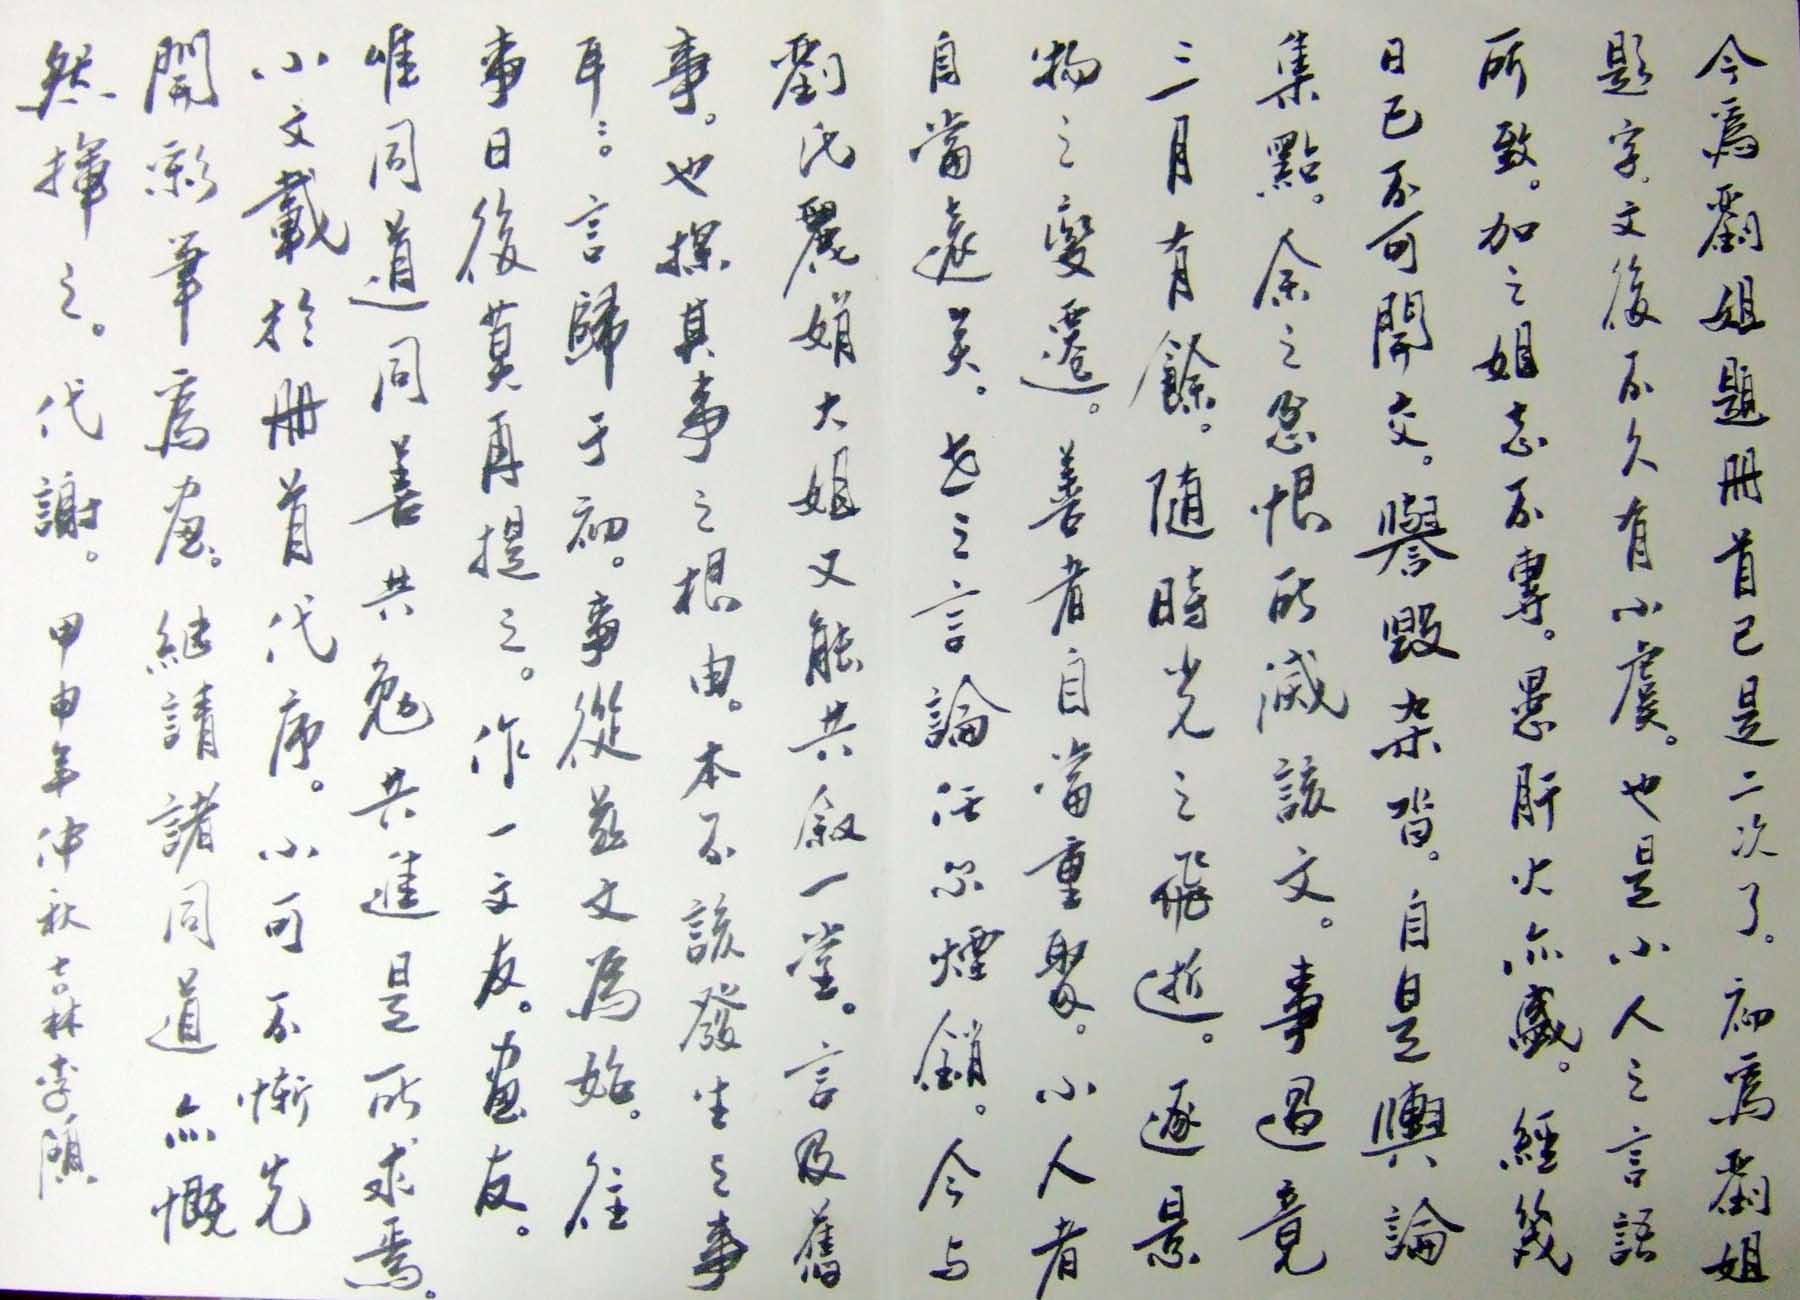 今爲劉姐題冊首已是二次了。初爲劉姐
題字。文後不久有小虞。也是小人之言語
所致。加之姐志不專。愚肝火亦盛。經幾
日已不可開交。譽毀杂沓。自是輿論
集點。余之忿恨所滅該文。事過竟
三月有餘。隨時光之飛逝。逐景
物之變遷。善者自當重聚。小人者
自當遠矣。老之言論活尔煙銷。今与
劉氏麗娟大姐又能共叙一堂。言及舊
事。也探其事之根由。本不該發生之事
耳ミ。言歸于初。事從兹文為始。往
事日後莫再提之。作一文友。畫友。
唯同道同善共勉共進是所求焉。
小文載於冊首代序。小可不慚先
開彩筆爲畫。繼請諸同道亦慨
然揮之。代謝。甲申年仲秋吉林李頌